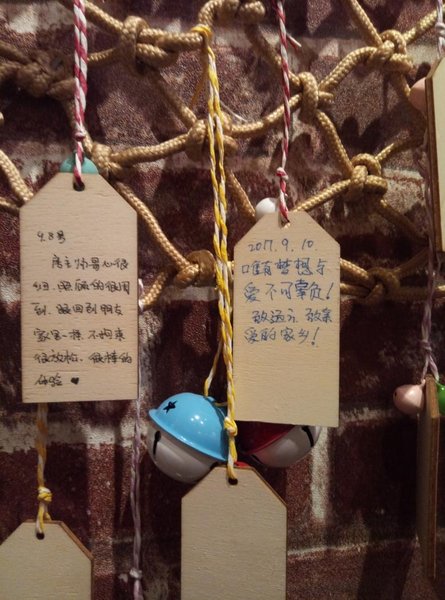 9.8号
房主场景心很
细,照顾的很周
到,跟回到朋友
家里一样,不拘束
很放松,很棒的
体验 ♥
2017.9.10.
唯有梦想与
爱不可辜负!
致远方、致亲
爱的家乡!